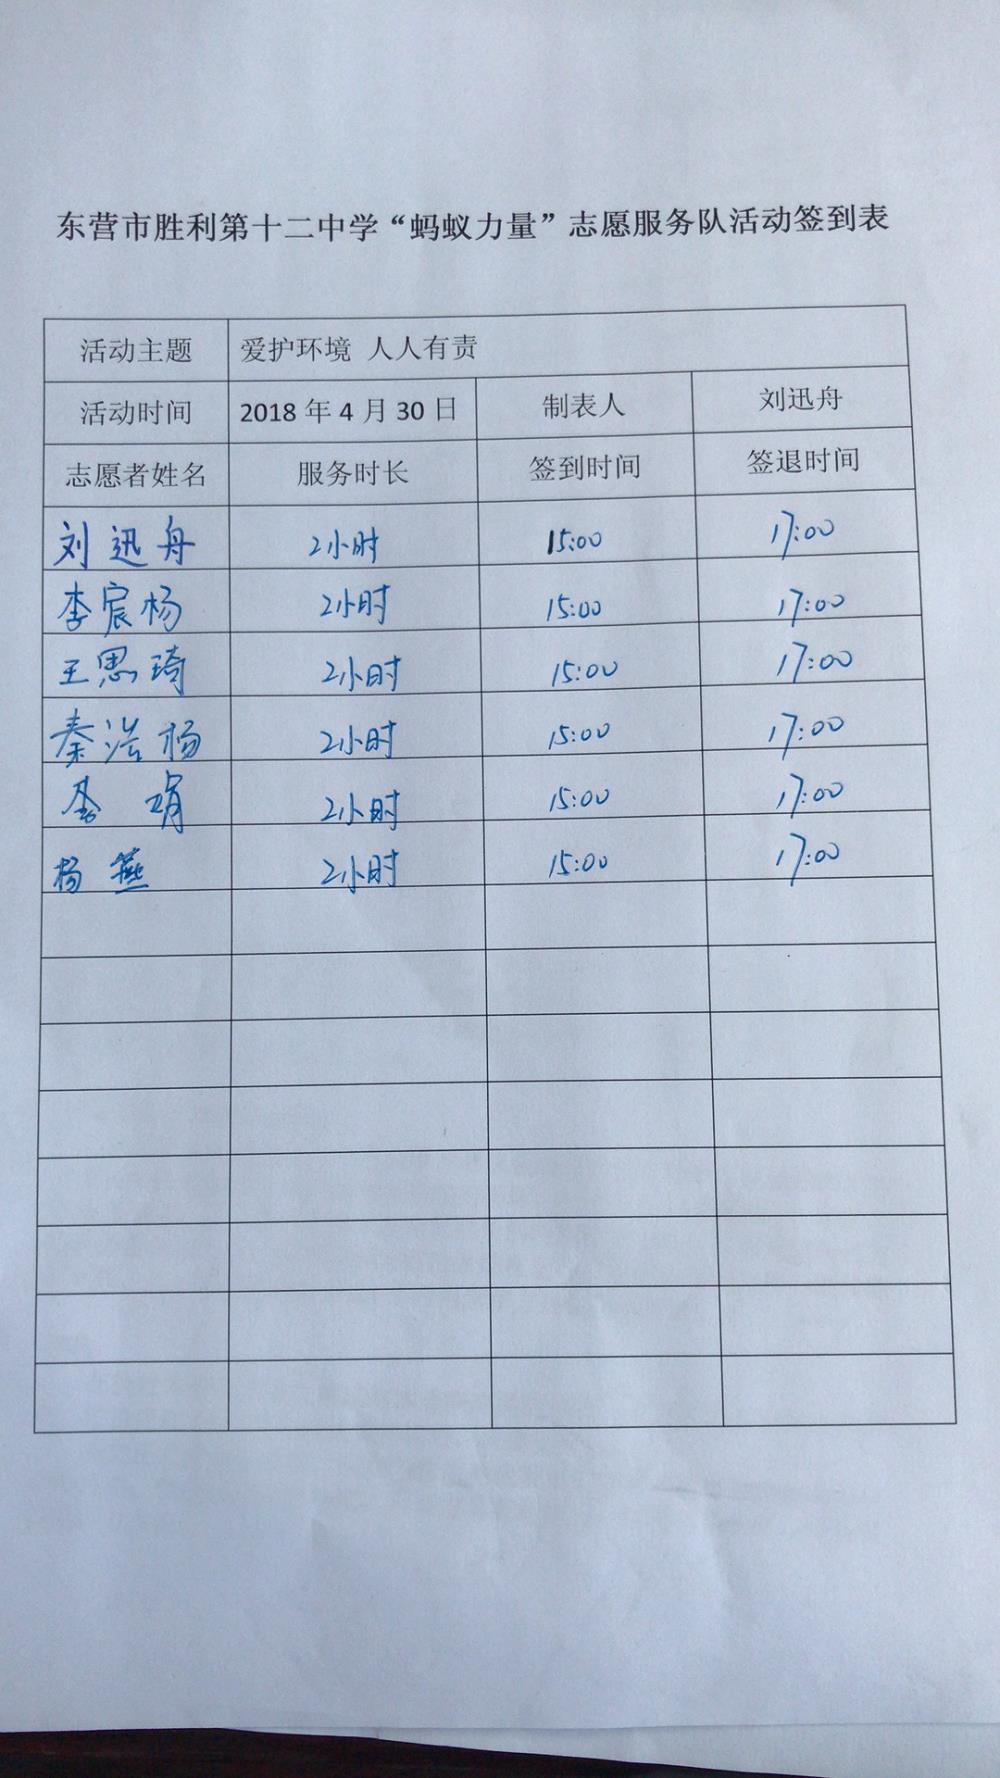 东营市胜利第十二中学“蚂蚁力量”志愿服务队活动签到表
活动主题 爱护环境 人人有责
活动时间 2018年4月30日 制表人 刘迅舟
志愿者姓名 服务时长 签到时间 签退时间
刘迅舟 2小时 15:00 17:00
李宸杨 2小时 15:00 17:00
王思琦 2小时 15:00 17:00
秦浩杨 2小时 15:00 17:00
娟 2小时 15:00 17:00
杨燕 2小时 15:00 17:00